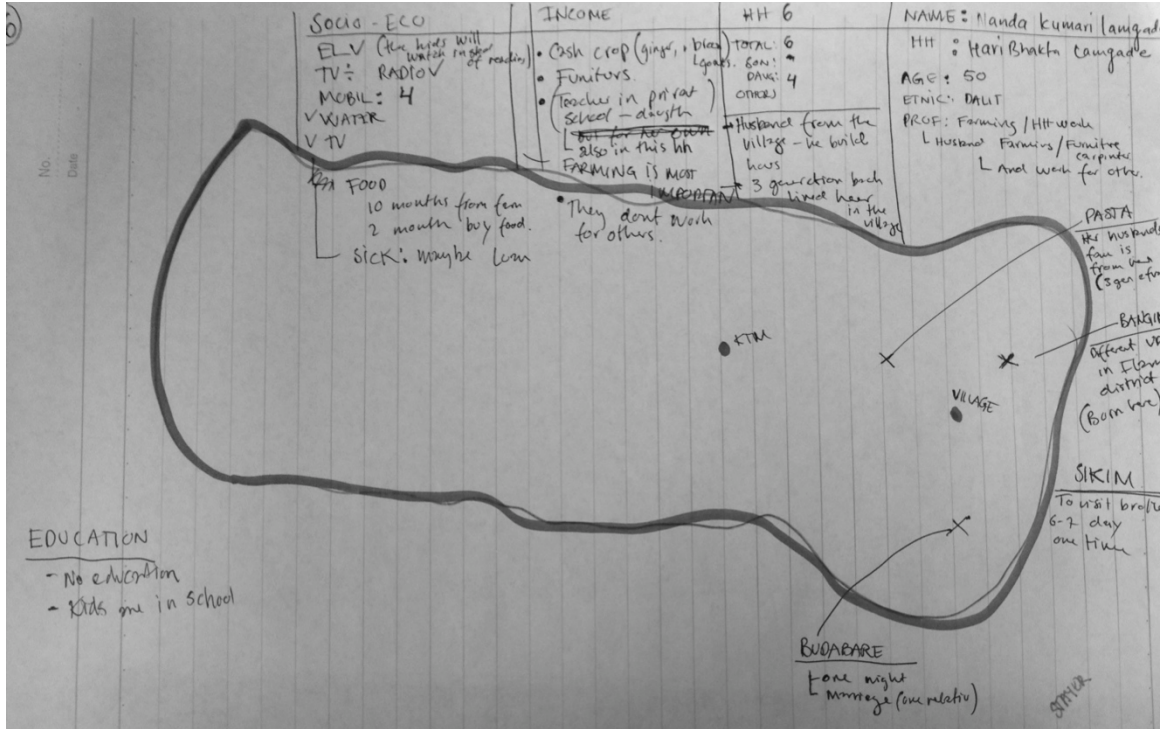 No.
Date
SOCIO-ECO
EL V (the kids will
watch instead
of reading)
TV ÷ RADIO V
MOBIL: 4
V WATER
V TV
FOOD
10 months from farm
2 month buy food.
SICK: maybe
INCOME
• Cash crop (ginger,
goats.
• Furniturs.
• (Teacher in privat
school - daugth
also in this hh
FARMING is most
IMPORTANT
• They dont work
for others.
HH 6
TOTAL: 6
SON:
DAUG: 4
OTHERS
Husband from the
village - he build
hous
3 generation back
lived heer
in the
village
NAME: Nanda Kumari Lamgade
HH : HariBhakta Lamgade
AGE: 50
ETNIC: DALIT
PROF: Farming / HH work
Husband Farming / Furnitre
carpinter
And work for othr.
PASTA
Her husbands
fam is
from her
(3 gen
KTM
Different
in
district
(Born here)
VILLAGE
SIKIM
To visit
6-7 day
one time
EDUCATION
- No education
- Kids are in school
BUDABARE
one night
marriage (one relativ)